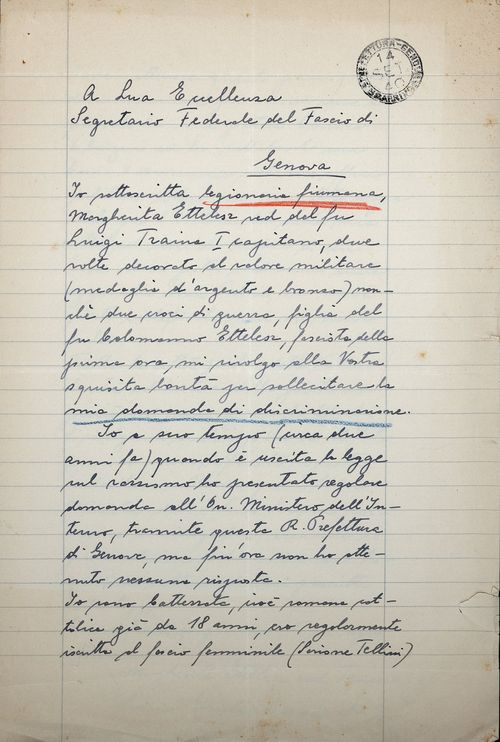 PREFETTURA - GENOVA
14
SET
40
A Sua Eccellenza
Segretario Federale del Fascio di
Genova
Io sottoscritta legionaria fiumana,
Margherita Ettelesz ved del fu
Luigi Traina I capitano, due
volte decorato al valore militare
(medaglia d'argento e bronzo) non-
chè due croci di guerra, figlia del
fu Colomanno Ettelesz, fascista della
prima ora, mi rivolgo alla Vostra
squisita bontà per sollecitare la
mia domanda di discriminazione.
Io a suo tempo (circa due
anni fa) quando è uscita la legge
sul razzismo ho presentato regolare
domanda all'On. Ministero dell'In-
terno, tramite questa R. Prefettura
di Genova, ma fin'ora non ho otte-
nuto nessuna risposta.
Io sono battezzata, cioè romana cat-
tolica già da 18 anni, ero regolarmente
iscritta al fascio femminile (Sezione Tellini)